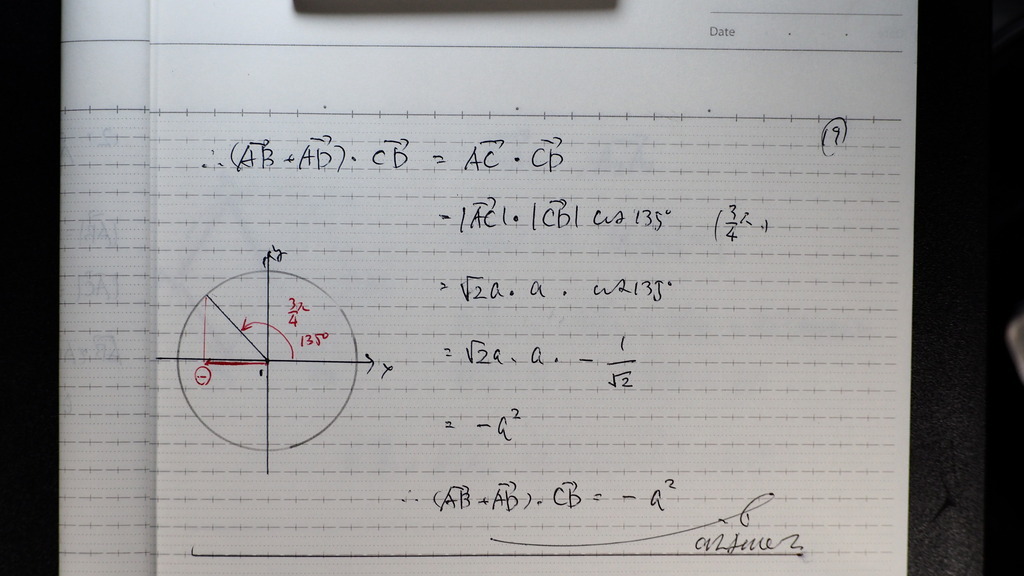 Date
(9)
∴ (AB + AD) · CD = AC · CD
= |AC| · |CD| cos 135° (3/4 π)
= √2a · a · cos 135°
= √2a · a · - 1/√2
= -a²
∴ (AB + AD) · CD = -a²
answer
y
3/4 π
135°
x
⊖